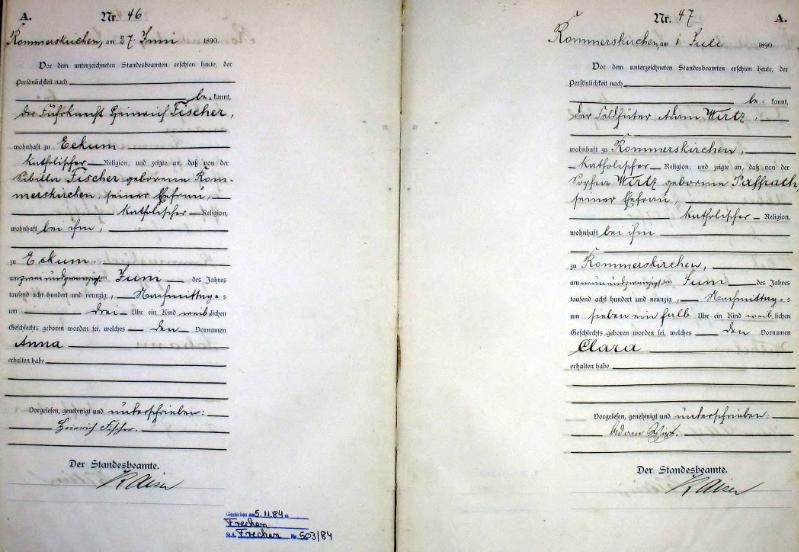 A.
Nr. 46
Rommerskirchen, am 27. Juni 1890.
Vor dem unterzeichneten Standesbeamten erschien heute, der
Persönlichkeit nach
be- kannt,
der Heinrich Fischer,
wohnhaft zu Eckum
katholischer Religion, und zeigte an, daß von der
Sibilla Fischer geborenen Rom-
merskirchen, seiner Ehefrau,
katholischer Religion,
wohnhaft bei ihm,
zu Eckum,
am zwei und zwanzigsten Juni des Jahres
tausend acht hundert und neunzig, Nachmittags
um drei Uhr ein Kind weiblichen
Geschlechts geboren worden sei, welches den Vornamen
Anna
erhalten habe
Vorgelesen, genehmigt und unterschrieben:
Heinrich Fischer.
Der Standesbeamte.
Kaiser
5.11.84
Frechen
Frechen Nr. 503/84
Nr. 47
A.
Rommerskirchen, am 1 Juli 1890
Vor dem unterzeichneten Standesbeamten erschien heute, der
Persönlichkeit nach
be- kannt,
der Feldhüter Adam Wirtz,
wohnhaft zu Rommerskirchen,
katholischer Religion, und zeigte an, daß von der
Sophia Wirtz geborenen Paffrath,
seiner Ehefrau,
katholischer Religion,
wohnhaft bei ihm
zu Rommerskirchen,
am Juni des Jahres
tausend acht hundert und neunzig, Nachmittags
um sieben ein halb Uhr ein Kind weiblichen
Geschlechts geboren worden sei, welches den Vornamen
Clara
erhalten habe
Vorgelesen, genehmigt und unterschrieben:
Adam
Der Standesbeamte.
Kaiser